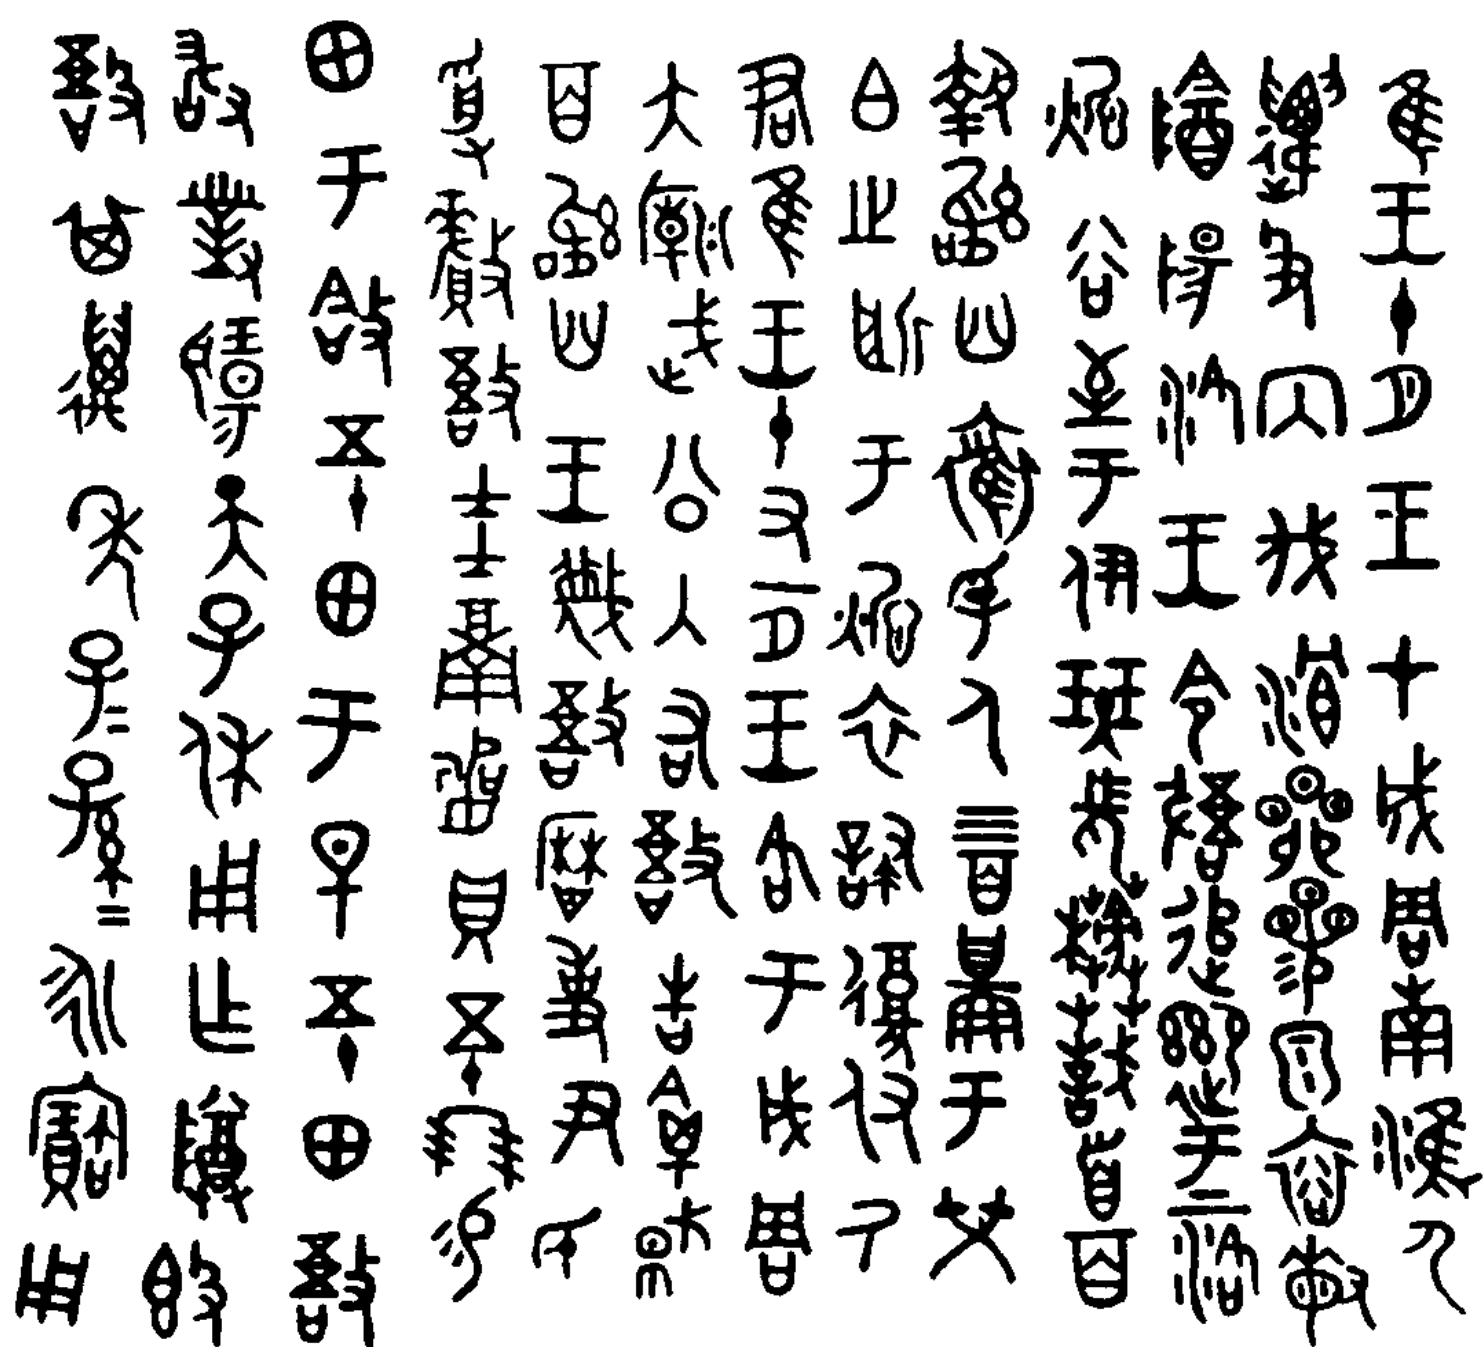 隹王十月王才成周南淮尸
遱殳內伐溟昴參泉裕敏
陰陽洛王令敔追禦于上洛
炪谷至于伊班長榜𢦏首百
執訊卌奪孚人四百啚于榮
白之所于炪衣復付氒
君隹王十又一月王各于成周
大廟武公入右敔告禽馘
百訊卌王蔑敔曆事尹氏
受釐敔圭瓚貝五十朋易
田于敆五十田于早五十田敔
敢對揚天子休用乍尊𣪘
敔其萬年子=孫=永寶用